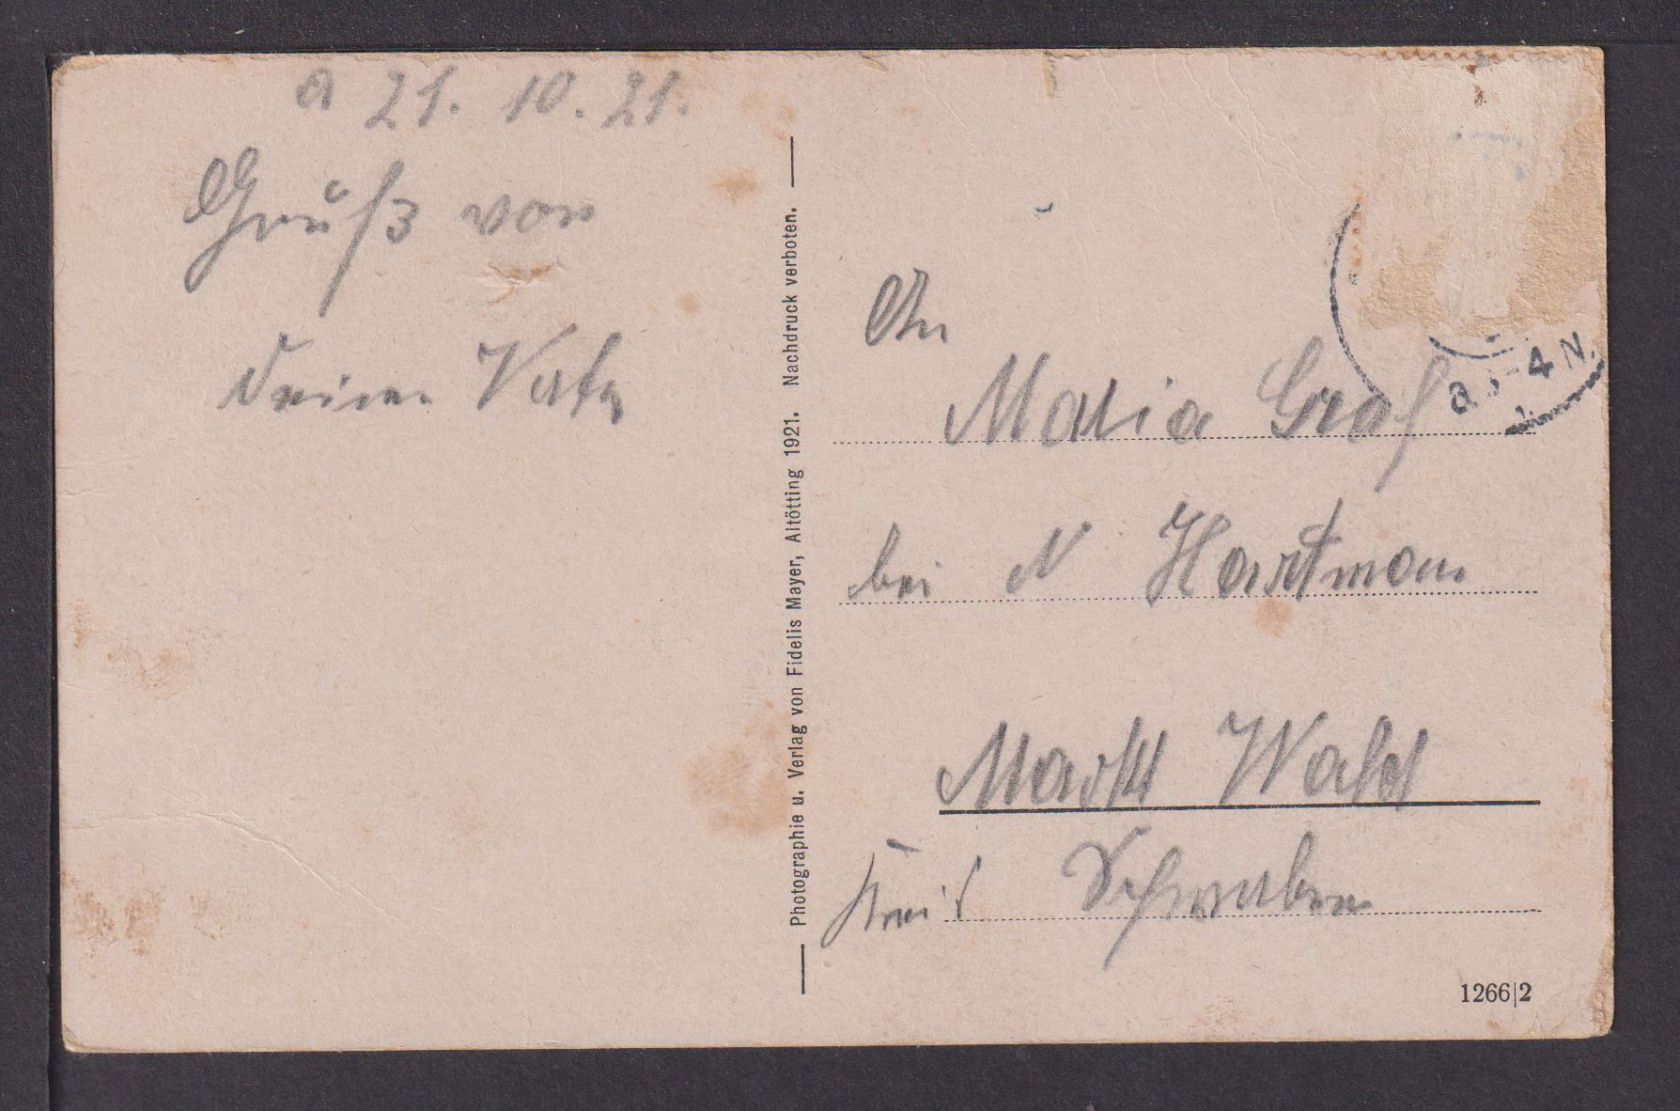 a 21. 10. 21.
Gruß von
deinem Vater
Photographie u. Verlag von Fidelis Mayer, Altötting 1921. Nachdruck verboten.
4 N.
An
Maria Graf
bei N Hartman
Markt Wald
Kreis Schwaben
1266|2